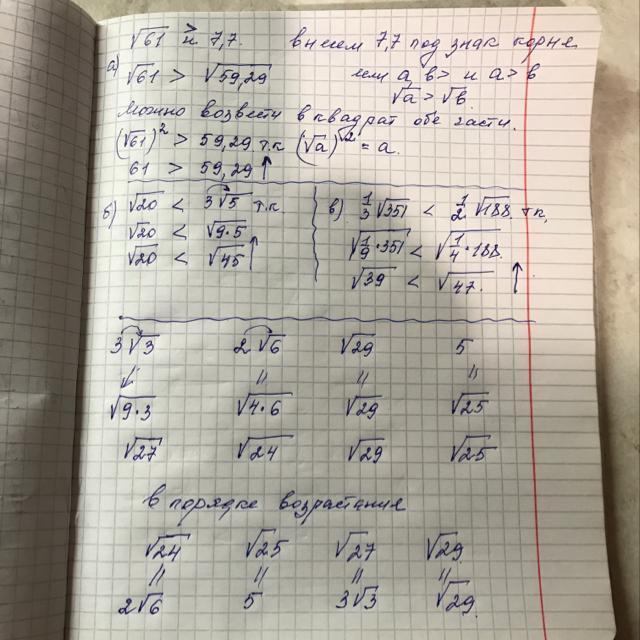 √61 > и 7,7. внесем 7,7 под знак корня
а) √61 > √59,29 а, b > и a > b
√a > √b.
Можно возвести в квадрат обе части.
(√61)² > 59,29 т.к (√a)² = a.
61 > 59,29 ↑
б) √20 < 3√5 т.к.
√20 < √9·5
√20 < √45 ↑
в) 1/3 √351 < 1/2 √188 т.к,
√1/9·351 < √1/4·188.
√39 < √47. ↑
3√3 2√6 √29 5
↙ = = =
√9·3 √4·6 √29 √25
√27 √24 √29 √25
в порядке возрастания
√24 √25 √27 √29
= = = =
2√6 5 3√3 √29.